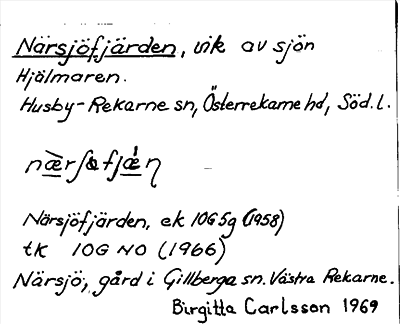 Närsjöfjärden, vik av sjön
Hjälmaren.
Husby-Rekarne sn, Österrekarne hd, Söd. l.
Närsjöfjärden, ek 10G5g (1958)
tk 10G NO (1966)
Närsjö, gård i Gillberga sn. Västra Rekarne.
Birgitta Carlsson 1969